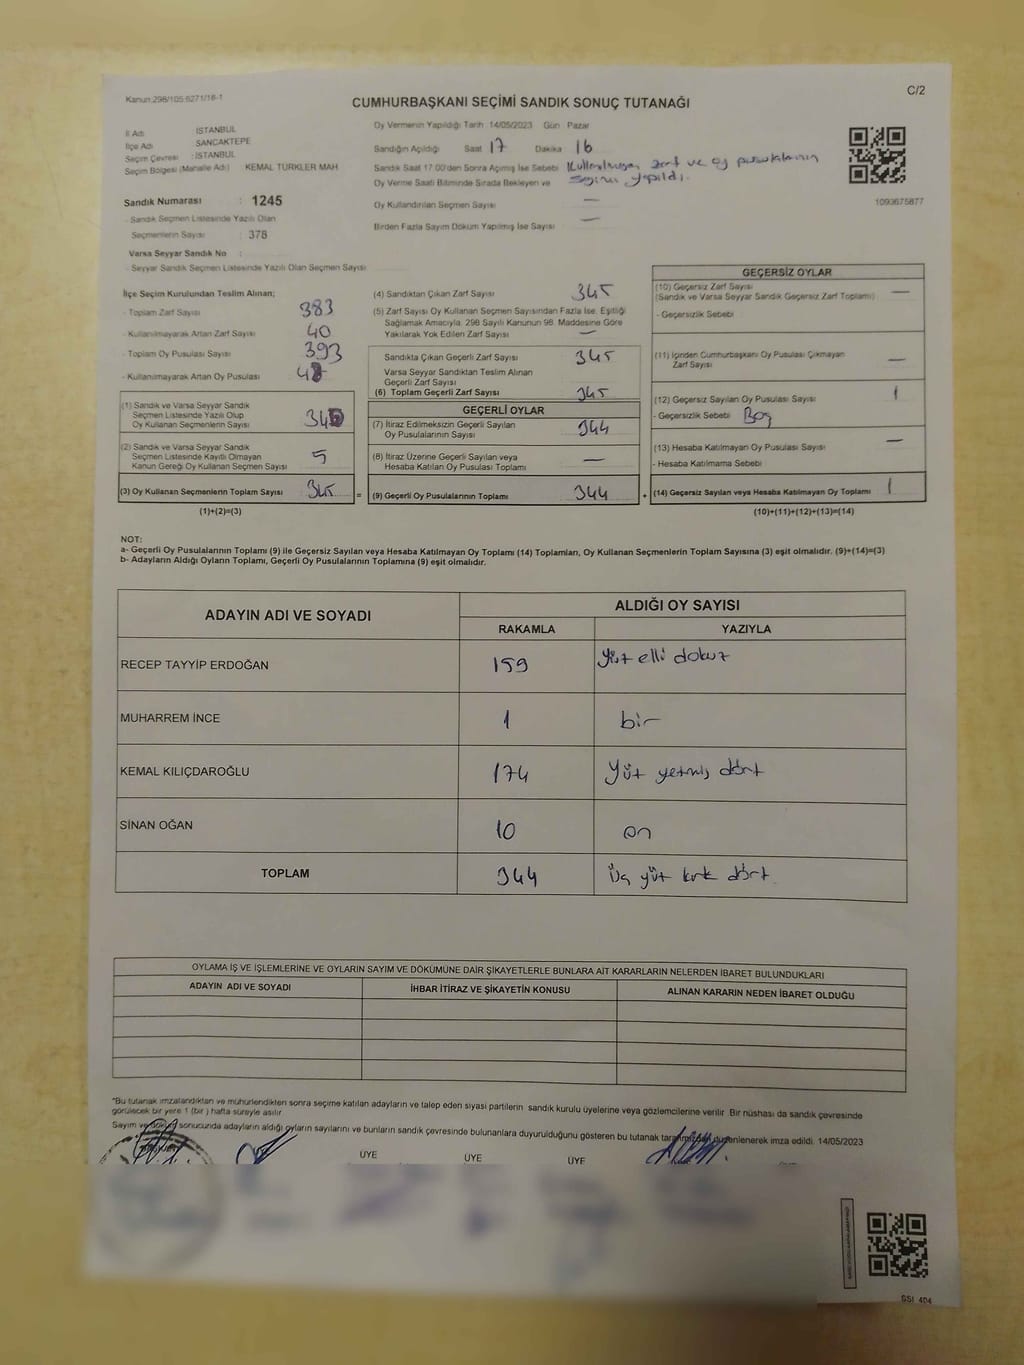 Kanun:298/105 6271/18-1
C/2
CUMHURBAŞKANI SEÇİMİ SANDIK SONUÇ TUTANAĞI
İl Adı : İSTANBUL
İlçe Adı SANCAKTEPE
Seçim Çevresi : İSTANBUL
Seçim Bölgesi (Mahalle Adı) KEMAL TÜRKLER MAH
Oy Vermenin Yapıldığı Tarih 14/05/2023 Gün Pazar
Sandığın Açıldığı Saat 17 Dakika 16
Sandık Saat 17.00'den Sonra Açımış İse Sebebi Kullanılmayan zarf ve oy pusulalarının
sayımı yapıldı.
Oy Verme Saati Bitiminde Sırada Bekleyen ve
Oy Kullandırılan Seçmen Sayısı —
Birden Fazla Sayım Döküm Yapılmış İse Sayısı —
1093675877
Sandık Numarası : 1245
- Sandık Seçmen Listesinde Yazılı Olan
Seçmenlerin Sayısı : 378
Varsa Seyyar Sandık No :
- Seyyar Sandık Seçmen Listesinde Yazılı Olan Seçmen Sayısı
İlçe Seçim Kurulundan Teslim Alınan;
- Toplam Zarf Sayısı 383
- Kullanılmayarak Artan Zarf Sayısı 40
- Toplam Oy Pusulası Sayısı 393
- Kullanılmayarak Artan Oy Pusulası
(1) Sandık ve Varsa Seyyar Sandık
Seçmen Listesinde Yazılı Olup
Oy Kullanan Seçmenlerin Sayısı
(2) Sandık ve Varsa Seyyar Sandık
Seçmen Listesinde Kayıtlı Olmayan
Kanun Gereği Oy Kullanan Seçmen Sayısı 5
(3) Oy Kullanan Seçmenlerin Toplam Sayısı 345 =
(1)+(2)=(3)
(4) Sandıktan Çıkan Zarf Sayısı 345
(5) Zarf Sayısı Oy Kullanan Seçmen Sayısından Fazla İse, Eşitliği
Sağlamak Amacıyla, 298 Sayılı Kanunun 98. Maddesine Göre
Yakılarak Yok Edilen Zarf Sayısı —
Sandıkta Çıkan Geçerli Zarf Sayısı 345
Varsa Seyyar Sandıktan Teslim Alınan
Geçerli Zarf Sayısı
(6) Toplam Geçerli Zarf Sayısı 345
GEÇERLİ OYLAR
(7) İtiraz Edilmeksizin Geçerli Sayılan
Oy Pusulalarının Sayısı 344
(8) İtiraz Üzerine Geçerli Sayılan veya
Hesaba Katılan Oy Pusulası Toplamı —
(9) Geçerli Oy Pusulalarının Toplamı 344 +
GEÇERSİZ OYLAR
(10) Geçersiz Zarf Sayısı —
(Sandık ve Varsa Seyyar Sandık Geçersiz Zarf Toplamı)
- Geçersizlik Sebebi
(11) İçinden Cumhurbaşkanı Oy Pusulası Çıkmayan
Zarf Sayısı —
(12) Geçersiz Sayılan Oy Pusulası Sayısı 1
- Geçersizlik Sebebi Boş
(13) Hesaba Katılmayan Oy Pusulası Sayısı —
- Hesaba Katılmama Sebebi
(14) Geçersiz Sayılan veya Hesaba Katılmayan Oy Toplamı 1
(10)+(11)+(12)+(13)=(14)
NOT:
a- Geçerli Oy Pusulalarının Toplamı (9) ile Geçersiz Sayılan veya Hesaba Katılmayan Oy Toplamı (14) Toplamları, Oy Kullanan Seçmenlerin Toplam Sayısına (3) eşit olmalıdır. (9)+(14)=(3)
b- Adayların Aldığı Oyların Toplamı, Geçerli Oy Pusulalarının Toplamına (9) eşit olmalıdır.
ADAYIN ADI VE SOYADI ALDIĞI OY SAYISI
RAKAMLA YAZIYLA
RECEP TAYYİP ERDOĞAN 159 Yüz elli dokuz
MUHARREM İNCE 1 bir
KEMAL KILIÇDAROĞLU 174 Yüz yetmiş dört
SİNAN OĞAN 10 on
TOPLAM 344 Üç yüz kırk dört
OYLAMA İŞ VE İŞLEMLERİNE VE OYLARIN SAYIM VE DÖKÜMÜNE DAİR ŞİKAYETLERLE BUNLARA AİT KARARLARIN NELERDEN İBARET BULUNDUKLARI
ADAYIN ADI VE SOYADI İHBAR İTİRAZ VE ŞİKAYETİN KONUSU ALINAN KARARIN NEDEN İBARET OLDUĞU
*Bu tutanak imzalandıktan ve mühürlendikten sonra seçime katılan adayların ve talep eden siyasi partilerin sandık kurulu üyelerine veya gözlemcilerine verilir. Bir nüshası da sandık çevresinde
görülecek bir yere 1 (bir) hafta süreyle asılır
Sayım ve döküm sonucunda adayların aldığı oyların sayılarını ve bunların sandık çevresinde bulunanlara duyurulduğunu gösteren bu tutanak tarafımızdan düzenlenerek imza edildi. 14/05/2023
ÜYE ÜYE ÜYE
SSI 404